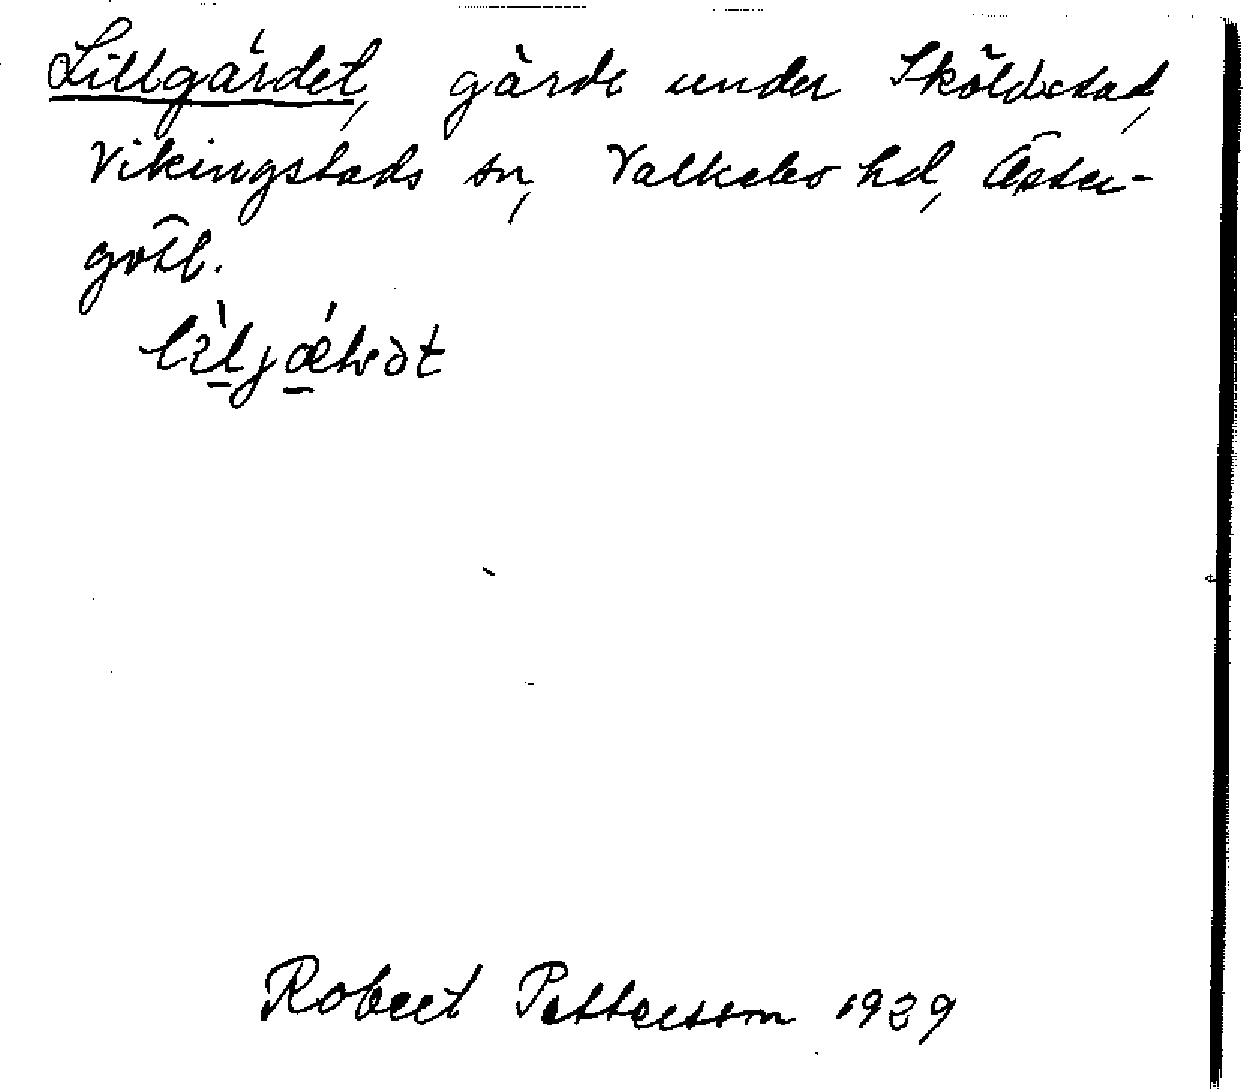 Lillgärdet, gärde under Sköldstad,
Vikingstads sn, Valkebo hd, Öster-
götl.
Robert Pettersson 1929